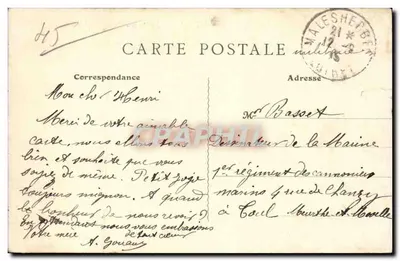 45
CARTE POSTALE
MALESHERBES
21 *
12 -
15
LOIRET
militaire
Correspondance
Adresse
Mon cher Henri
Merci de votre aimable
carte, nous allons tous
bien, et souhaite que vous
soyez de même. Petit
toujours mignon. A quand
le bonheur de nous revoir ?
En attendant nous vous embrassons
de tout cœur
Votre mère
A.
Mr Basset
Dessinateur de la Marine
1er régiment des canonniers
marins 4 rue de Chanzy
à Toul Meurthe-et-Moselle